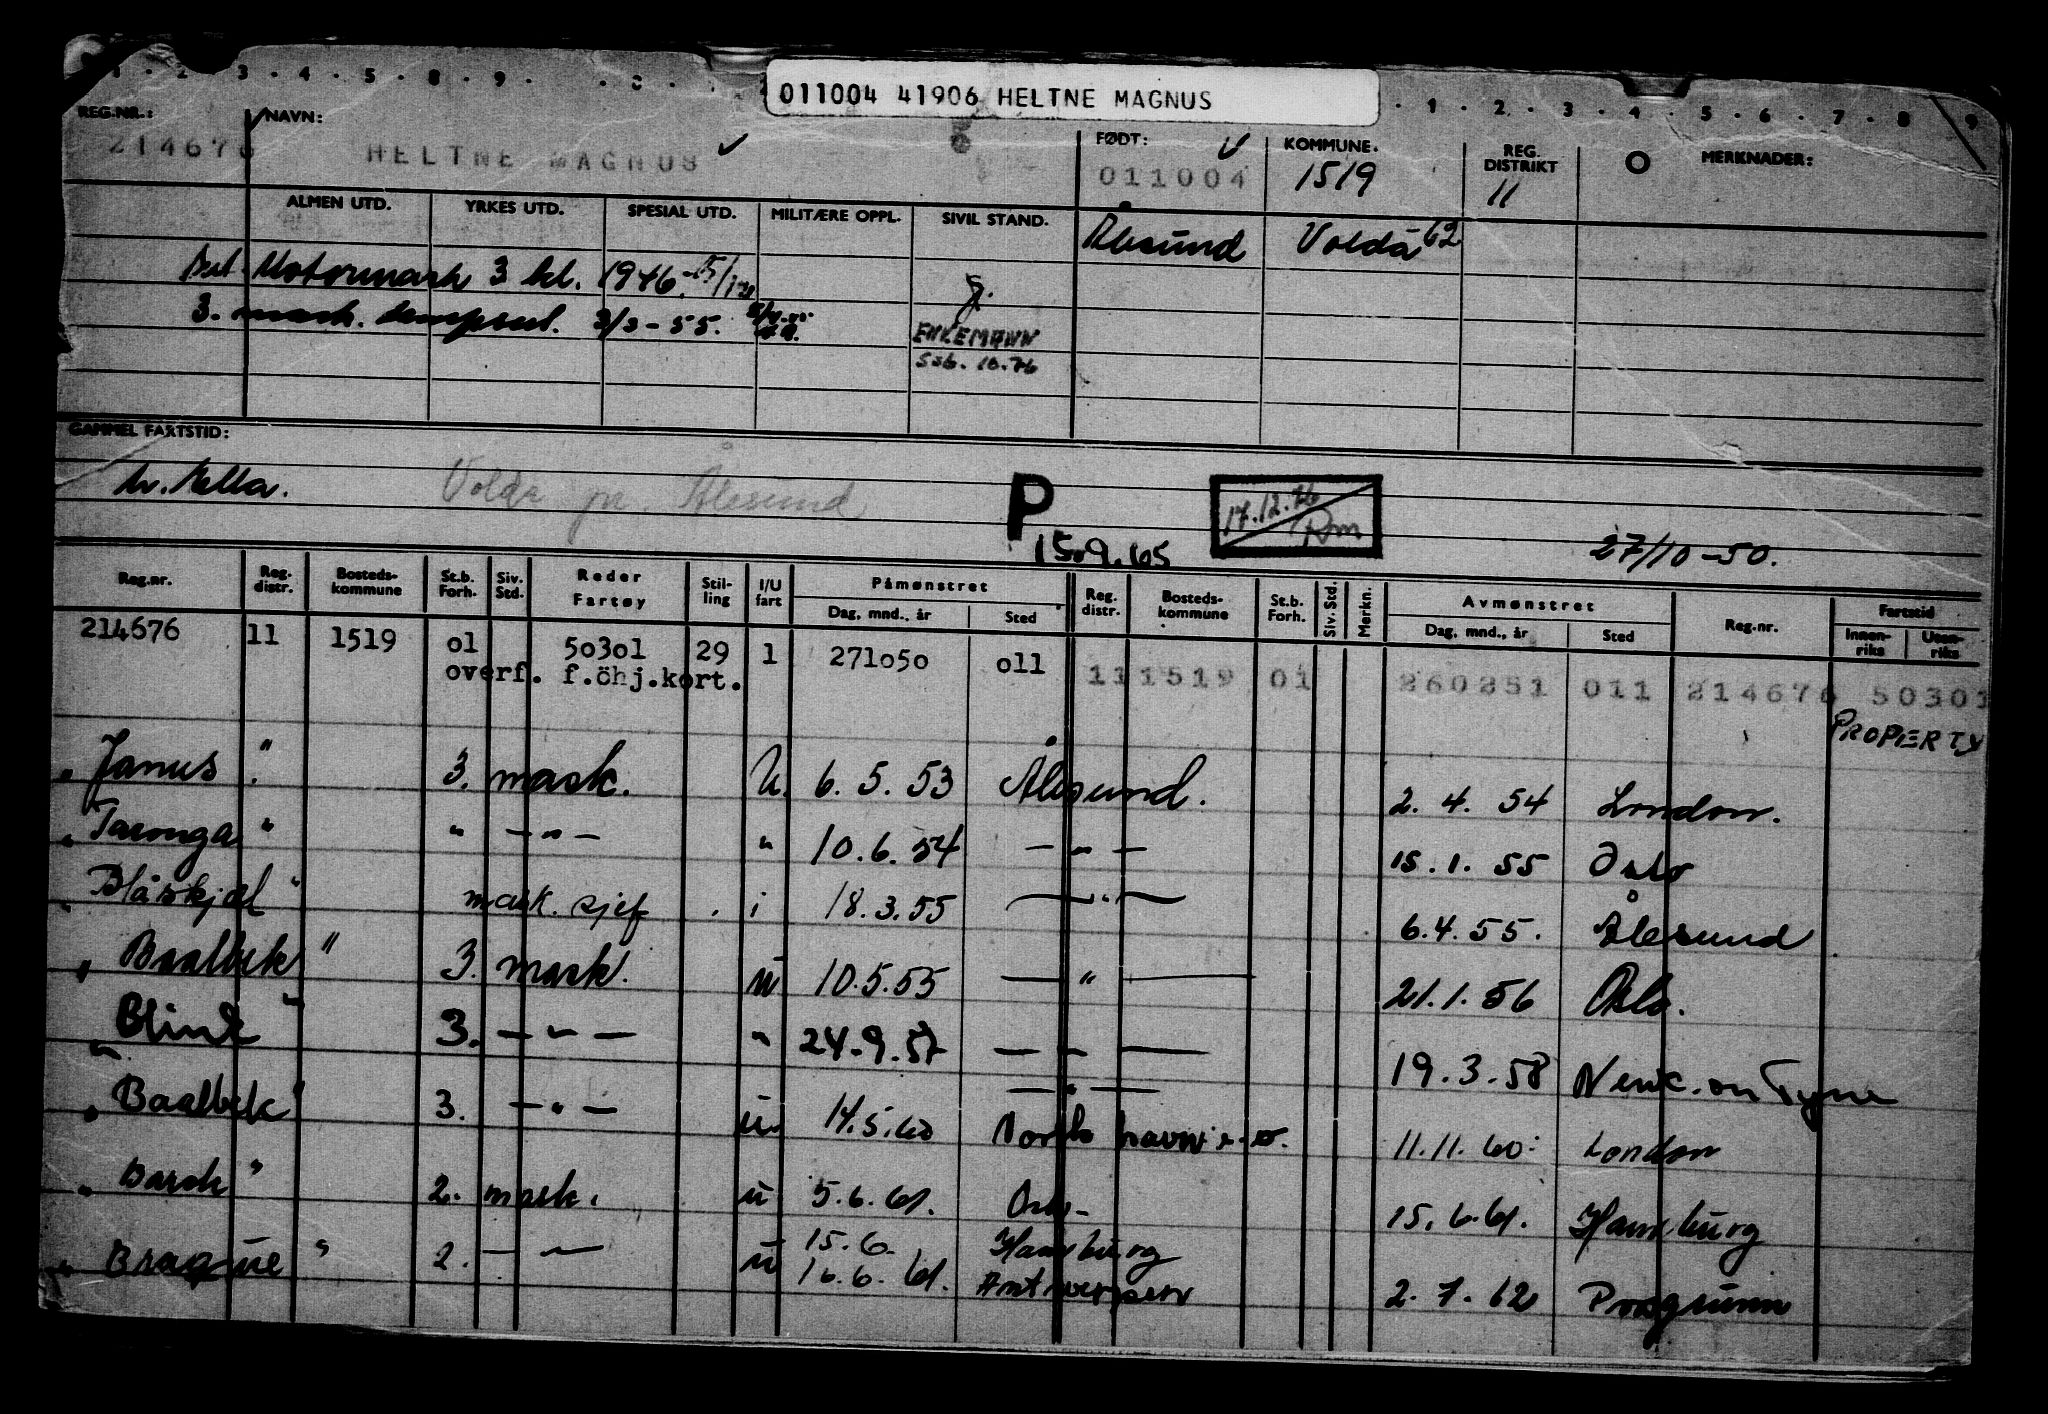 1 · 2 · 3 · 4 · 5 · 8 · 9 · · 0 · · 1 · 2 · 3 · 4 · 5 · 6 · 7 · 8 · 9
011004 41906 HELTNE MAGNUS
REG.NR.: NAVN: FØDT: KOMMUNE. REG. DISTRIKT MERKNADER:
214676 HELTNE MAGNUS 011004 1519 11
ALMEN UTD. YRKES UTD. SPESIAL UTD. MILITÆRE OPPL. SIVIL STAND. Ålesund Volda 62
Motormask 3 kl. 1946 g.
3. mask. 3/3-55. ENKEMANN
SSB. 10.76
GAMMEL FARTSTID:
Volda pr. Ålesund P 17.12.76
15.9.65 27/10-50.
Reg.nr. Reg. distr. Bosteds- kommune St.b. Forh. Siv. Std. Reder Fartøy Stil- ling I/U fart Påmønstret Dag, mnd., år Sted Reg. distr. Bosteds- kommune St.b. Forh. Siv. Std. Merkn. Avmønstret Dag, mnd., år Sted Reg.nr. Fartstid Innen- riks Uten- riks
214676 11 1519 01 50301 29 1 271050 011 11 1519 01 260251 011 214676 50301
overf. f.öhj.kort.
PROPERTY
" Janus " 3. mask. U. 6. 5. 53 Ålesund. 2. 4. 54 London.
" Taronga " " — " — " 10. 6. 54 — " — 15. 1. 55 Oslo
" Blåskjel " mask. sjef i 18. 3. 55 — " — 6. 4. 55. Ålesund
" Baalbek " 3. mask. u 10.5.55 — " — 21.1.56 Oslo.
" Blink " 3. — " — " 24.9.57 — " — 19.3.58 Newc. on Tyne
— " —
" Baalbek " 3. — " — u. 14.5.60 Norsk havn 11.11.60. London
" Barok " 2. mask. u 5.6.61. Oslo 15.6.61. Hamburg
" Braque " 2. — " — u 15.6. Hamburg 2.7.62 Porsgrunn
16.6.61. Antwerpen